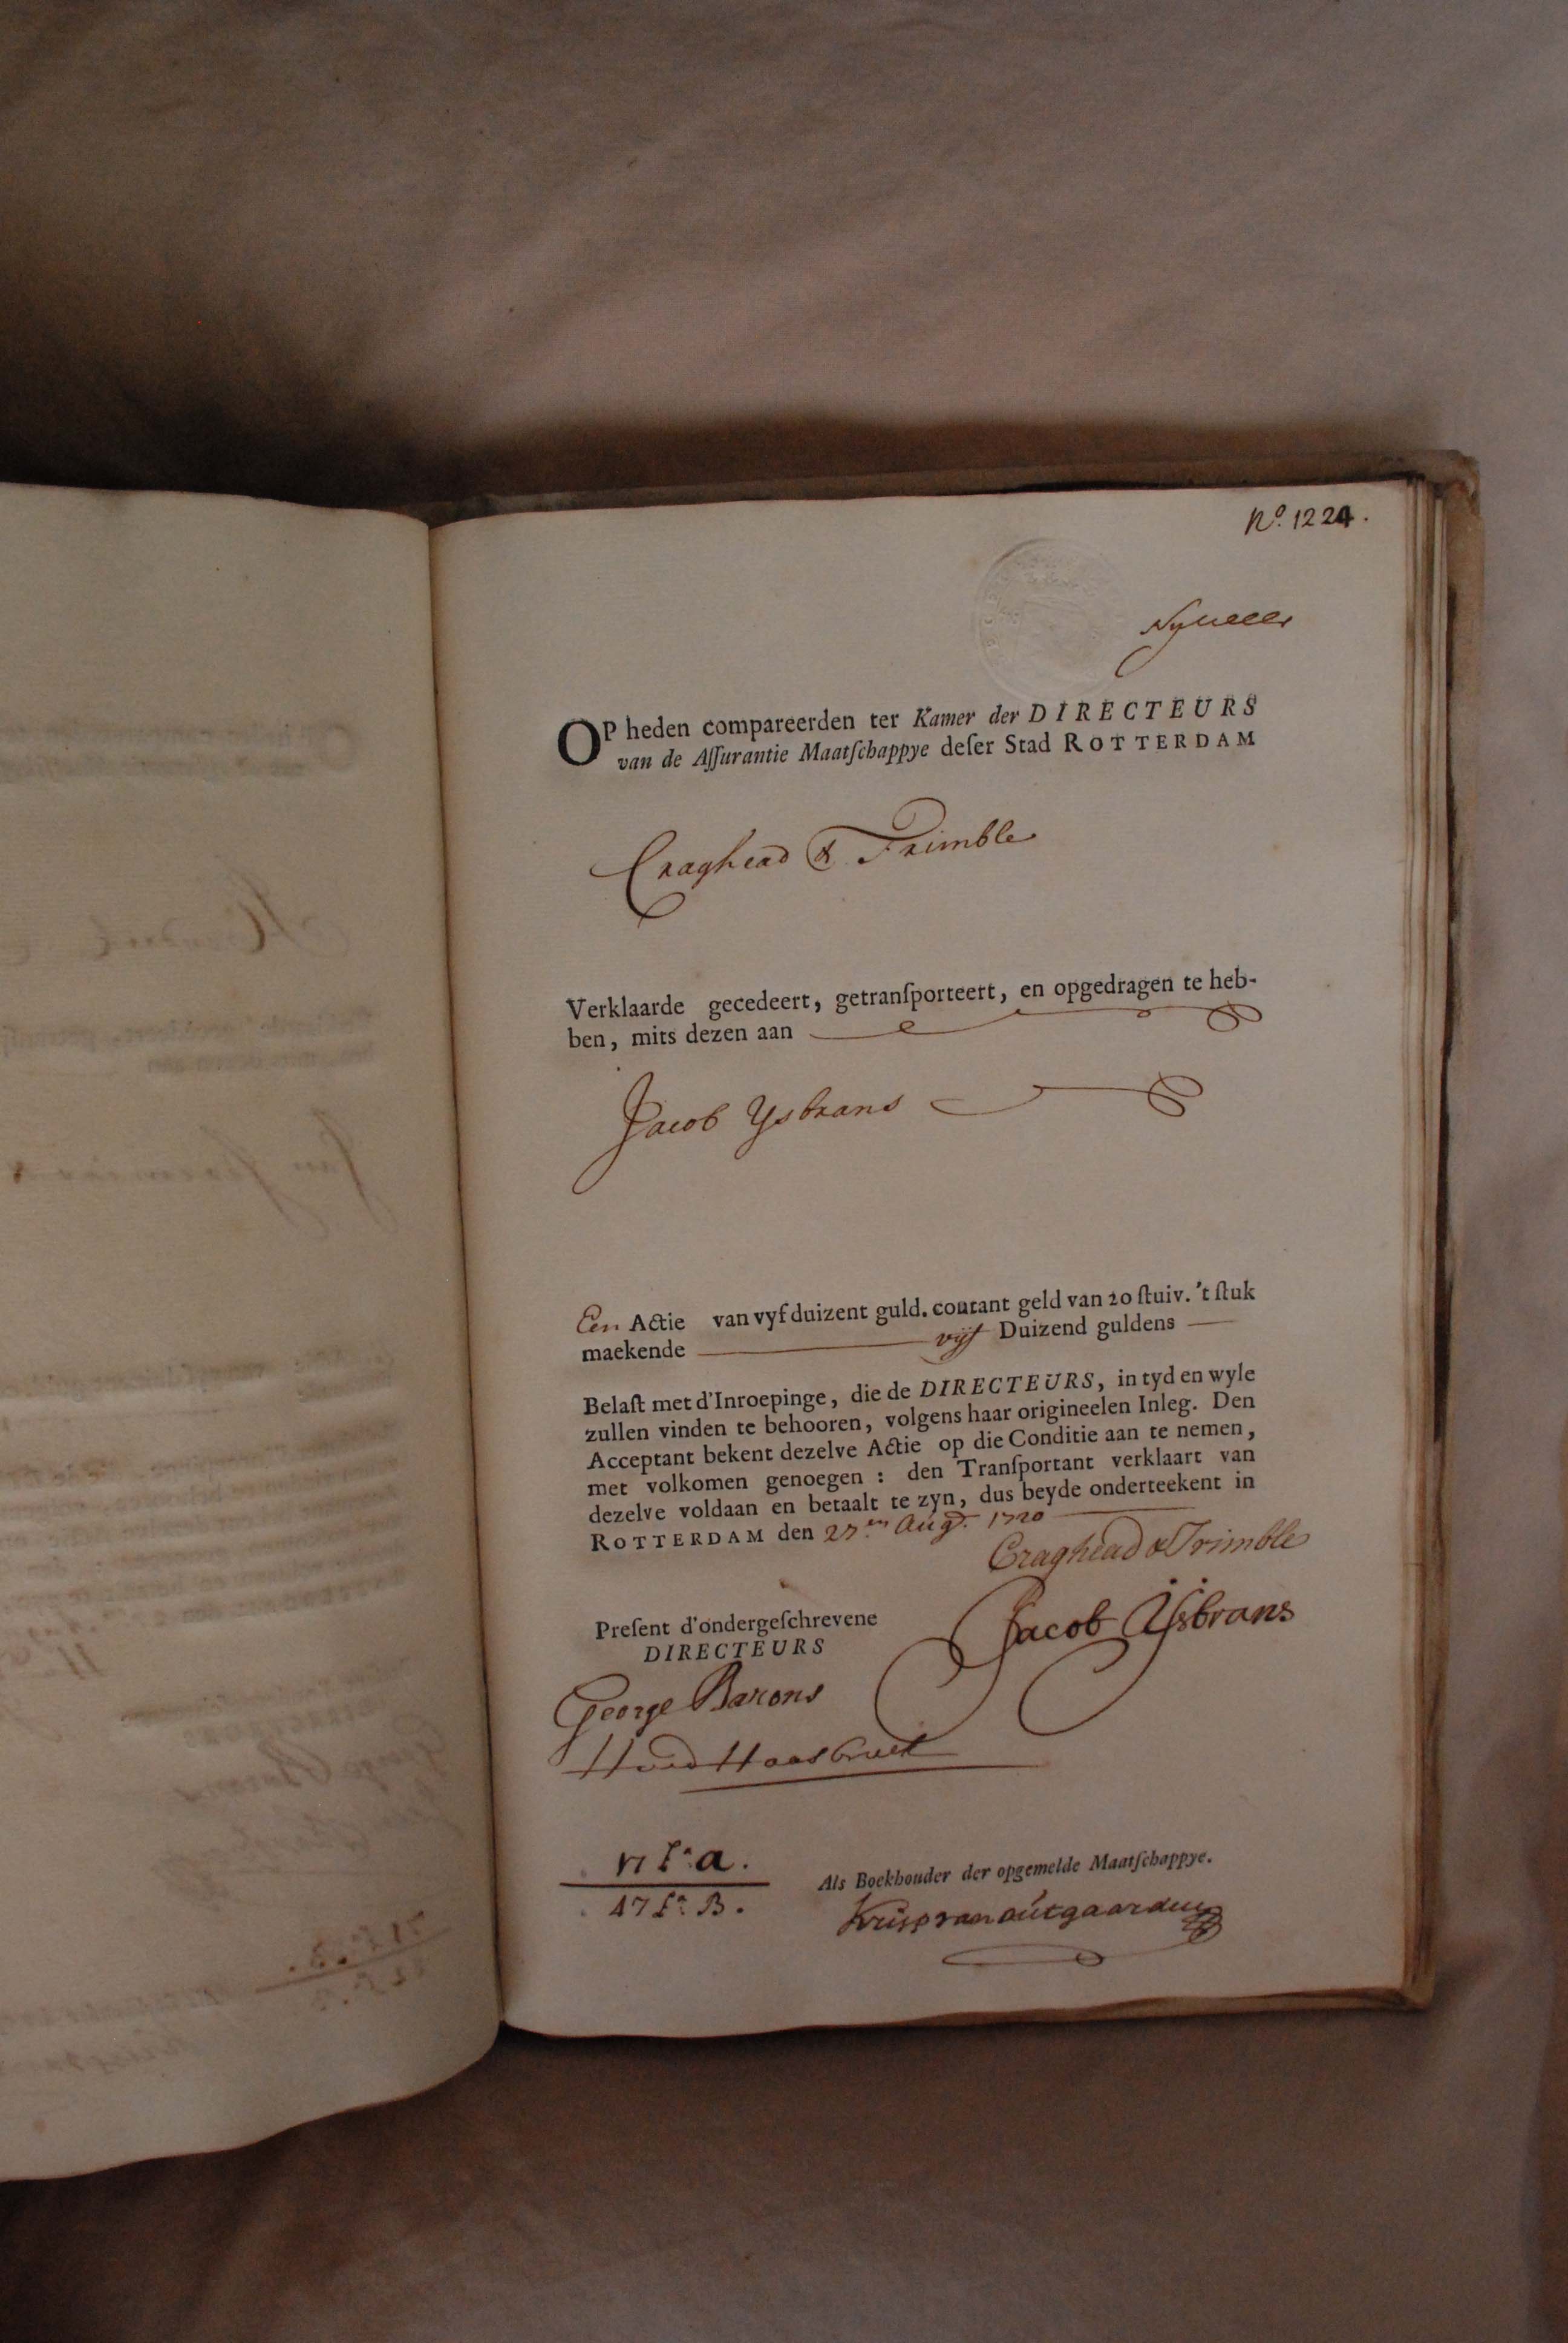 No. 1224.
OP heden compareerden ter Kamer der DIRECTEURS
van de Aſſurantie Maatſchappye deſer Stad ROTTERDAM
Craghead & Trimble
Verklaarde gecedeert, getranſporteert, en opgedragen te heb-
ben, mits dezen aan
Jacob Ysbrans
Een Actie van vyf duizent guld. courant geld van 20 ſtuiv. 't ſtuk
maekende vijf Duizend guldens
Belaſt met d'Inroepinge, die de DIRECTEURS, in tyd en wyle
zullen vinden te behooren, volgens haar origineelen Inleg. Den
Acceptant bekent dezelve Actie op die Conditie aan te nemen,
met volkomen genoegen : den Tranſportant verklaart van
dezelve voldaan en betaalt te zyn, dus beyde onderteekent in
ROTTERDAM den 27en Augt. 1720
Craghead & Trimble
Jacob Ÿsbrans
Preſent d'ondergeſchrevene
DIRECTEURS
George Barons
Haasbroek
Als Boekhouder der opgemelde Maatſchappye.
47 fo. B.
Krisp van outgaarden